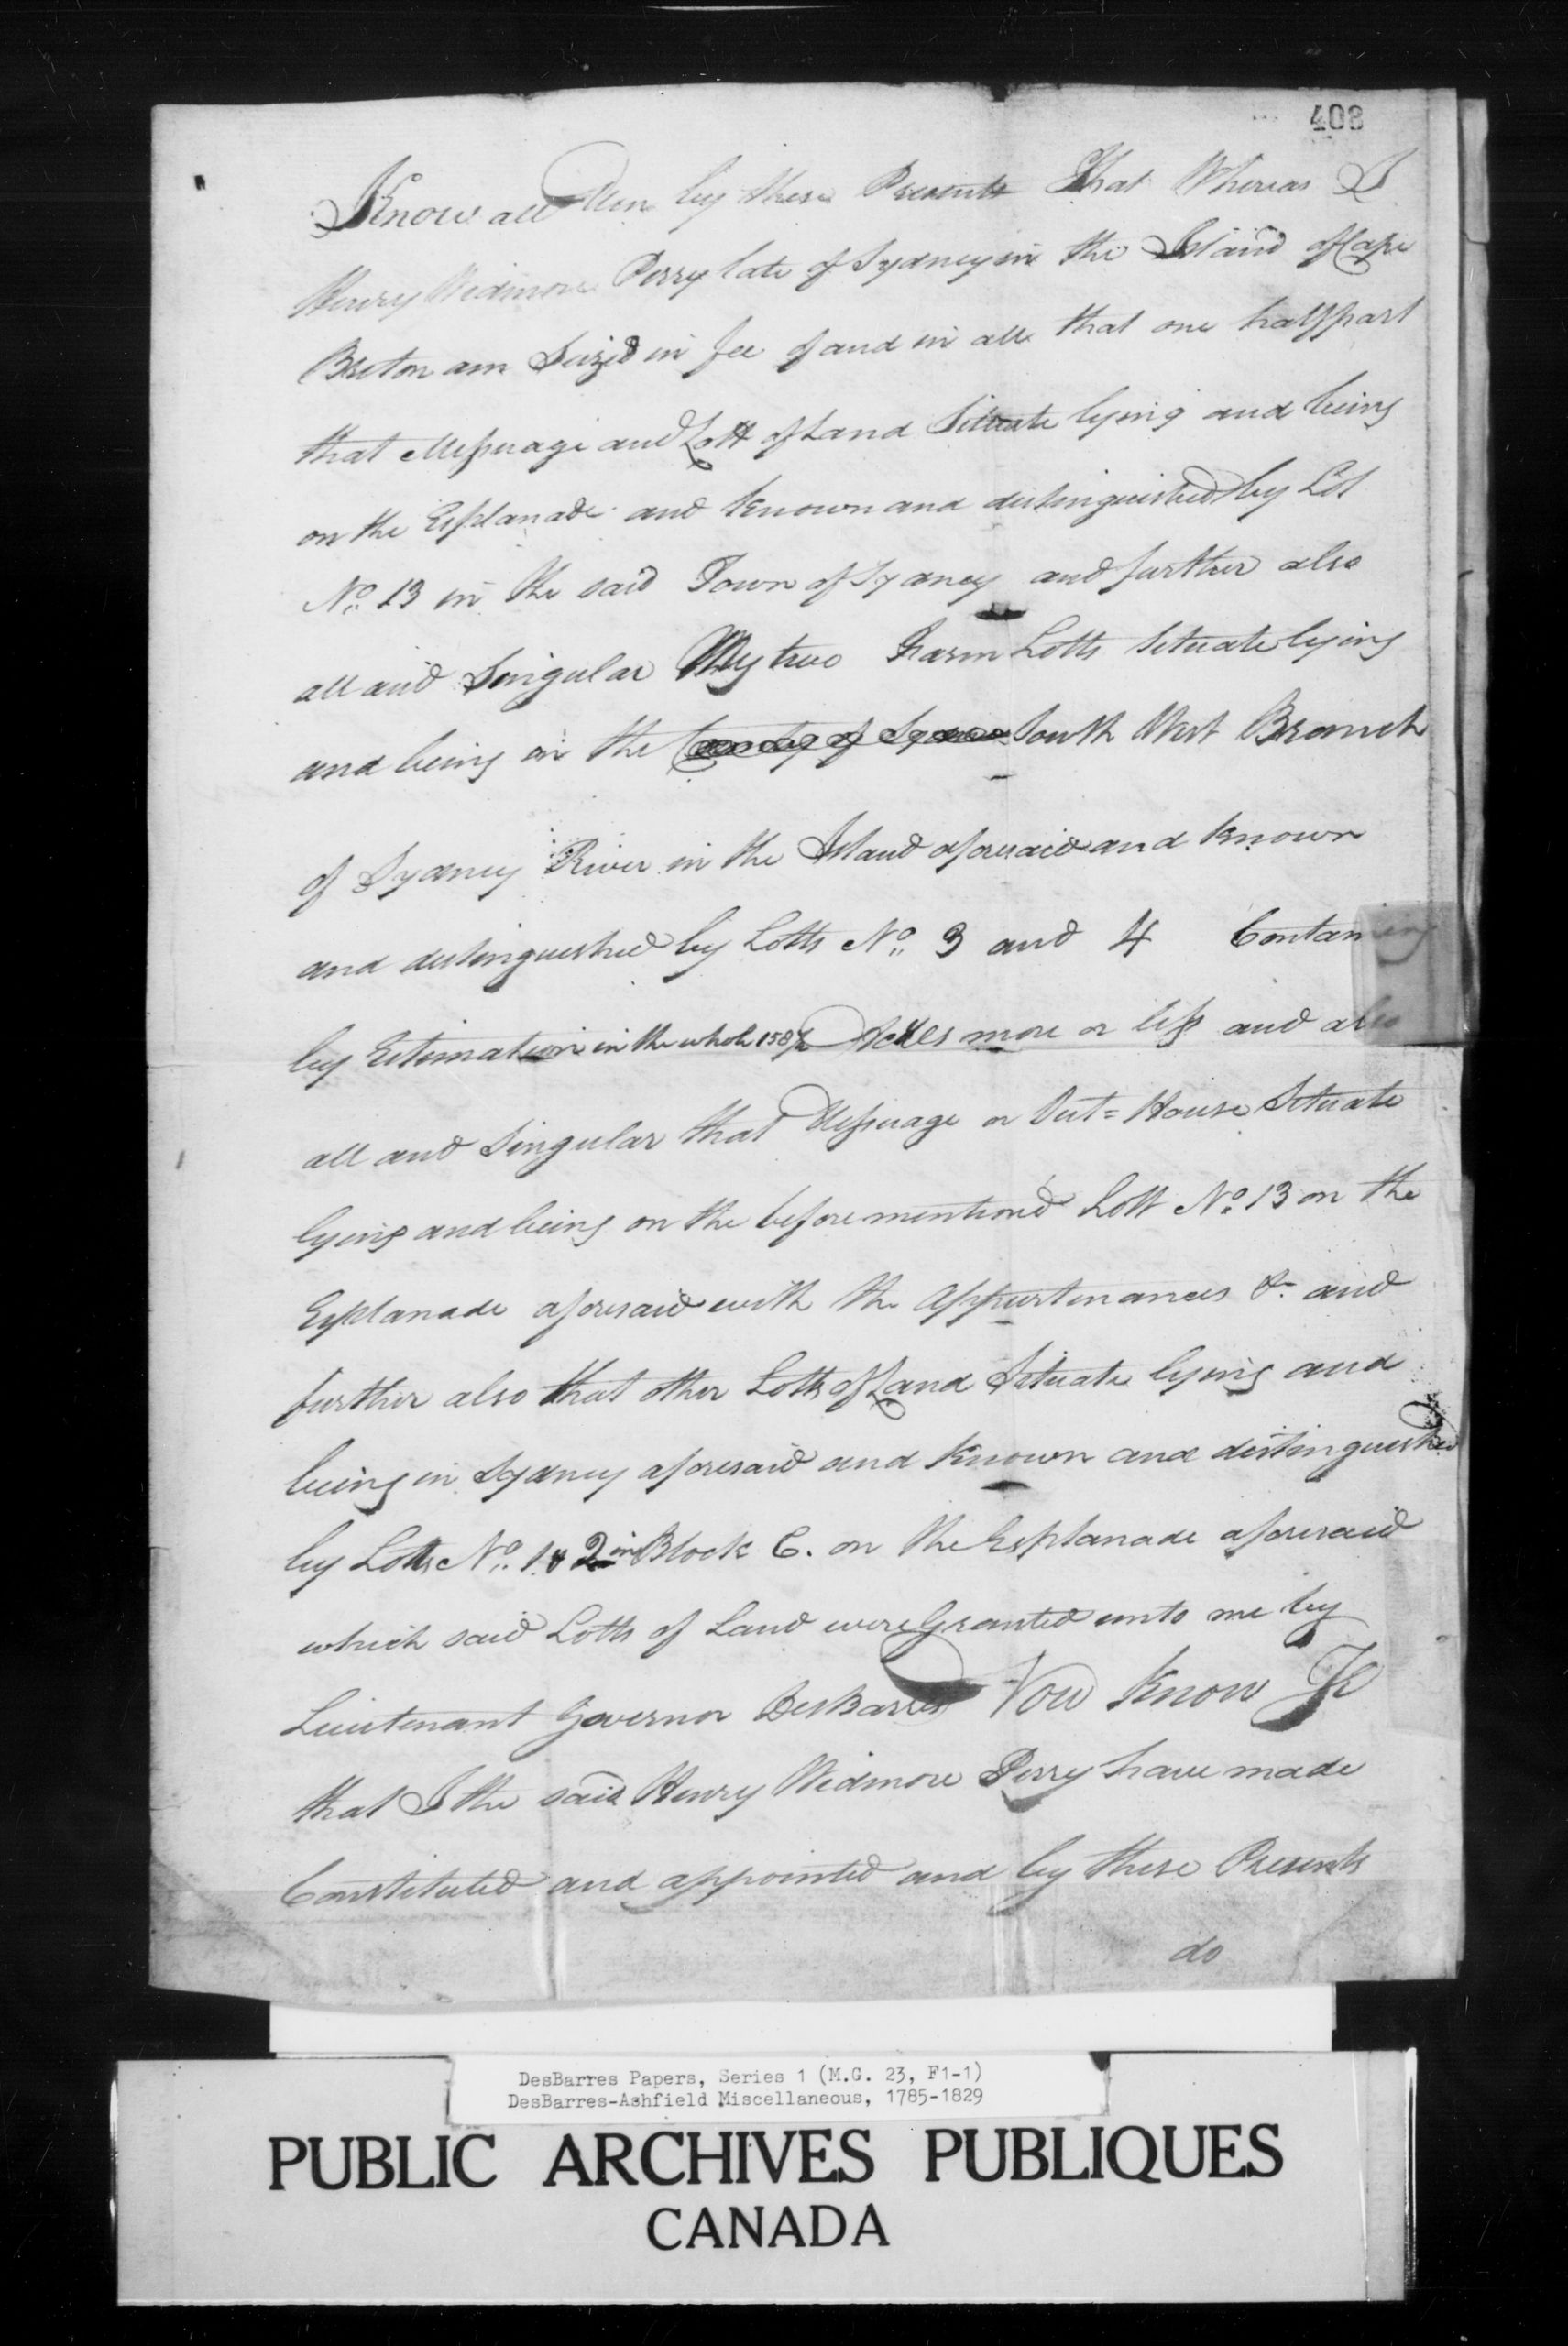 408
Know all Men by these Presents That Whereas I
Henry Widmore Perry late of Sydney in the Island of Cape
Breton am Seized in fee of and in all that one half part
that Messuage and Lott of Land Situate lying and being
on the Esplanade and known and distinguished by Lot
No. 13 in the said Town of Sydney and further also
all and Singular My two Farm Lotts Situate lying
and being on the County of Sydney South West Branch
of Sydney River in the Island aforesaid and known
and distinguished by Lotts No. 3 and 4 Containing
by Estimation in the whole Acres more or less and also
all and Singular that Messuage or Out=House Situate
lying and being on the before mentioned Lott No. 13 on the
Esplanade aforesaid with the Appurtenances &c and
further also that other Lotts of Land Situate lying and
being in Sydney aforesaid and Known and distinguished
by Lotts No. 1 & 2 in Block C. on the Esplanade aforesaid
which said Lotts of Land were Granted unto me by
Lieutenant Governor DesBarres Now Know Ye
that I the said Henry Widmore Perry have made
Constituted and appointed and by these Presents
do
DesBarres Papers, Series 1 (M.G. 23, F1-1)
DesBarres-Ashfield Miscellaneous, 1785-1829
PUBLIC ARCHIVES PUBLIQUES
CANADA